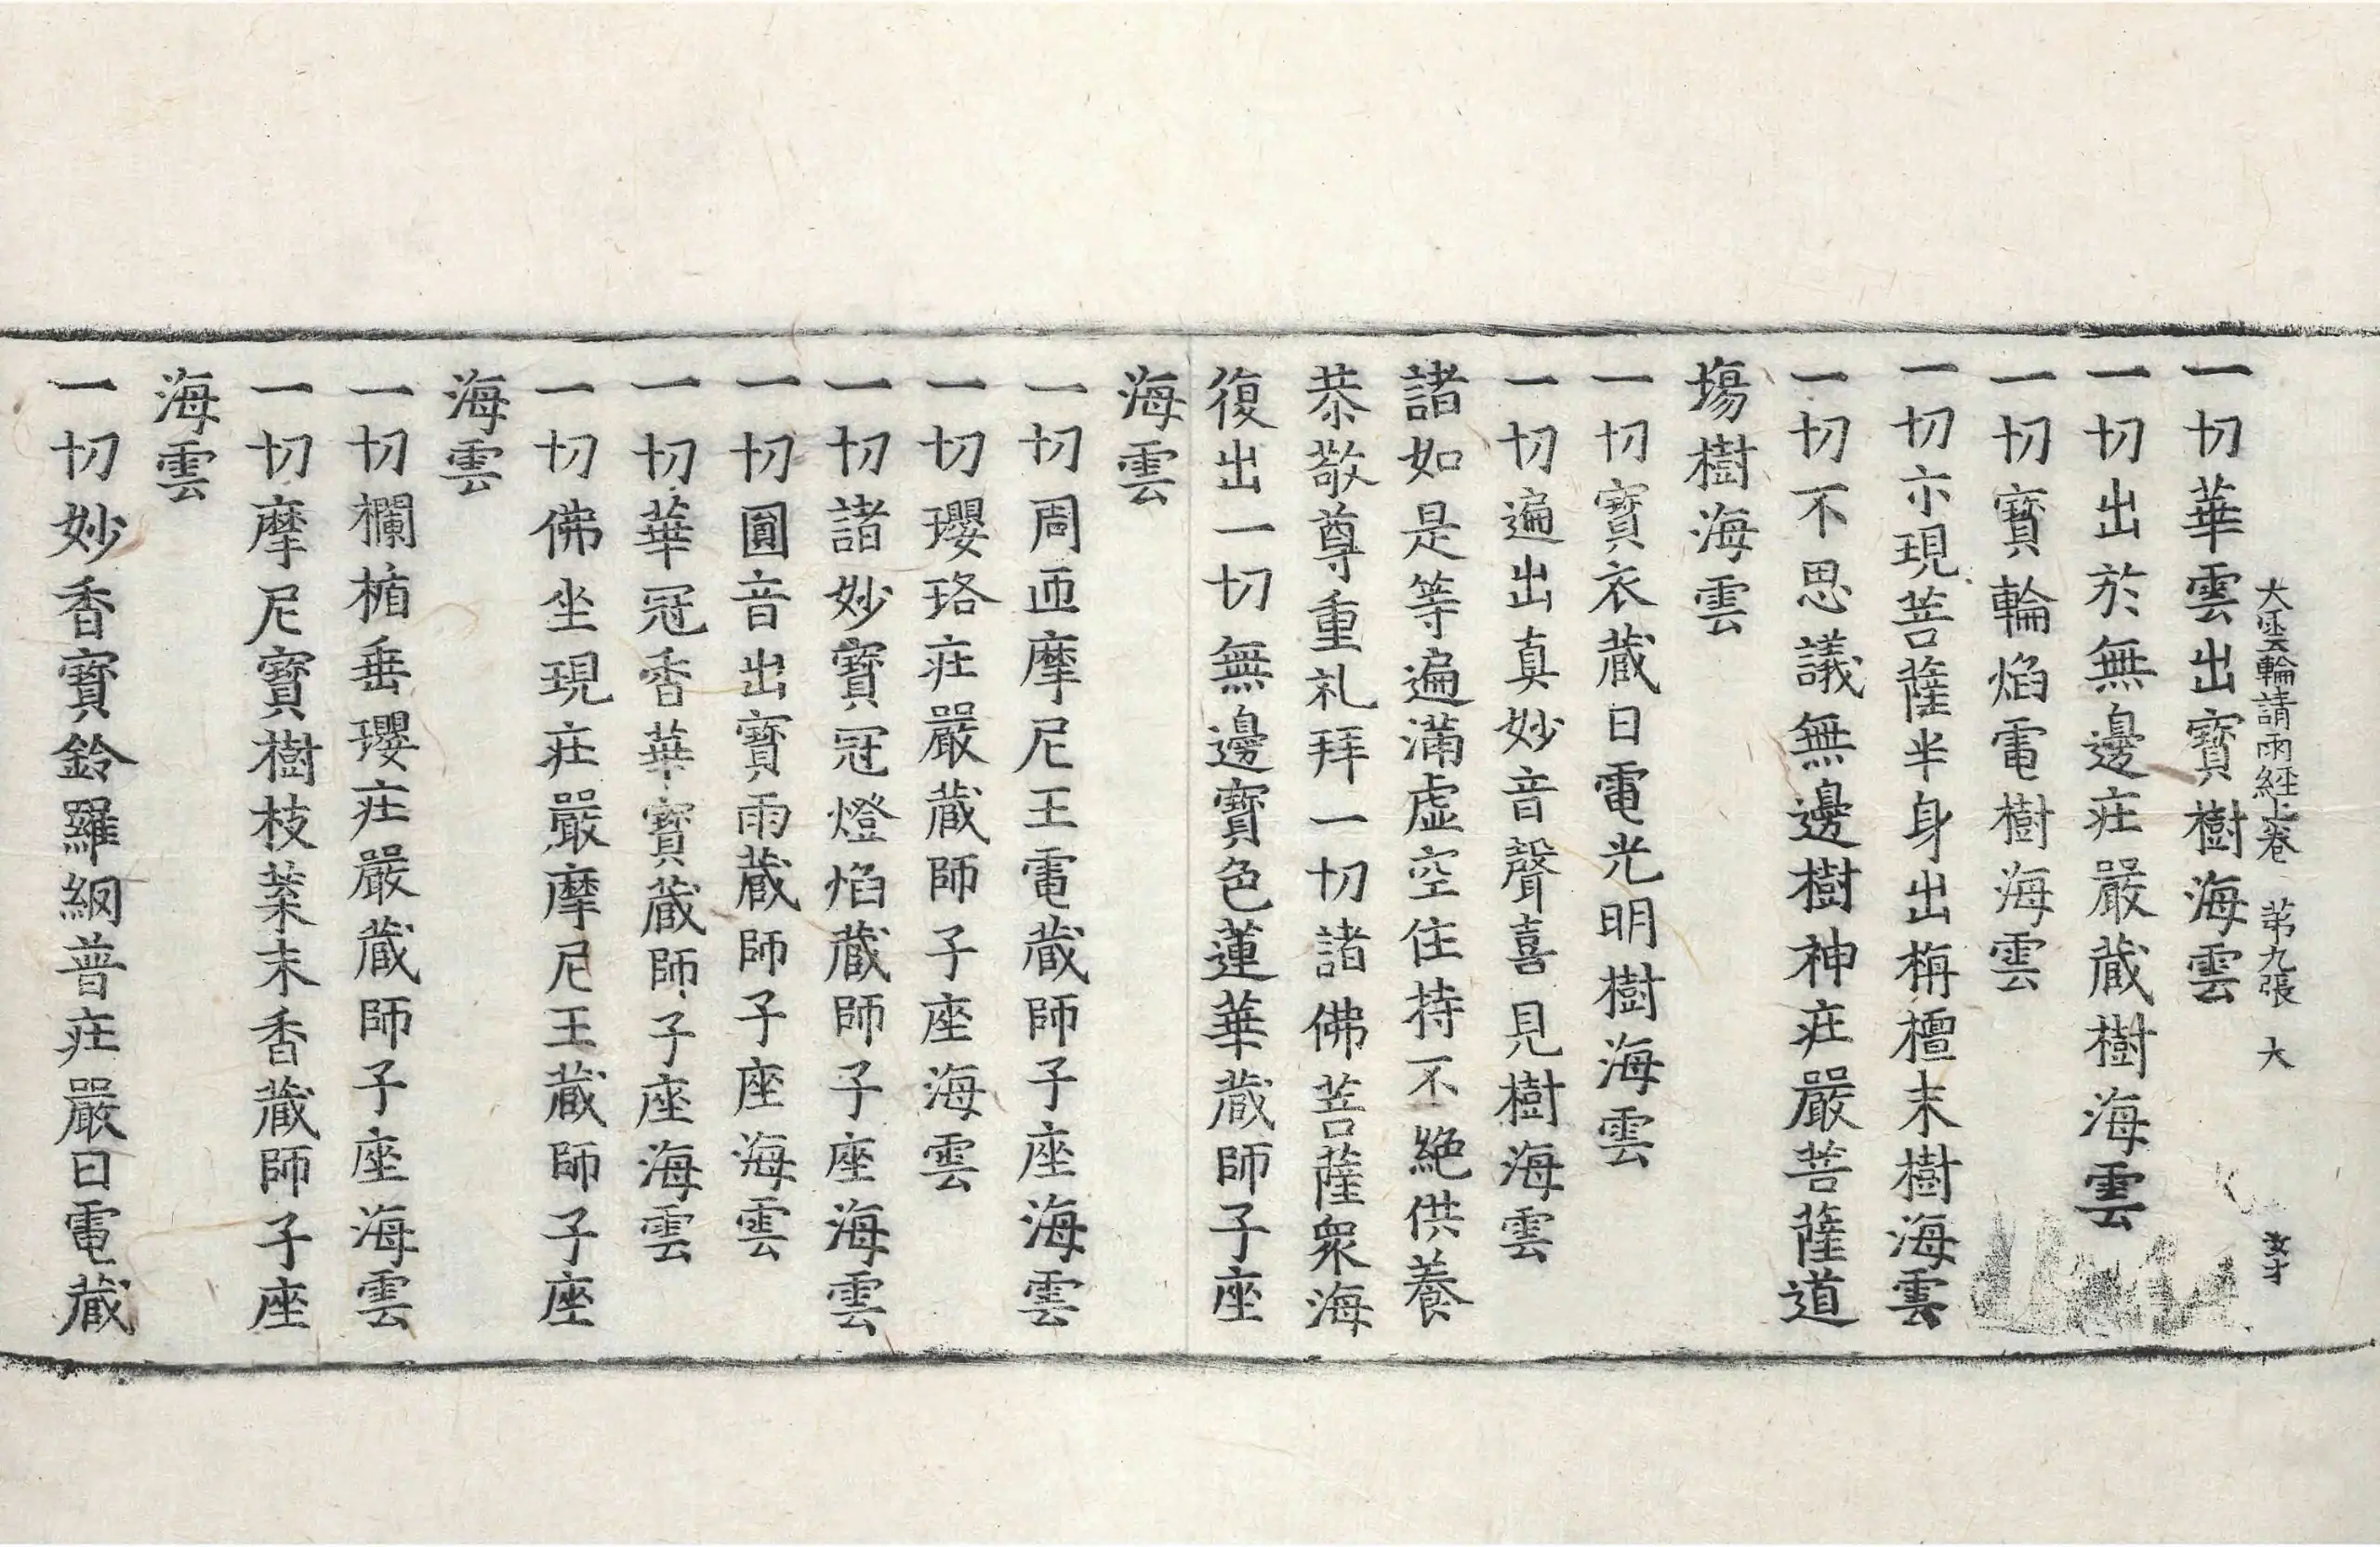 大雲輪請雨經上卷 苐九張 大
一切華雲出寶樹海雲
一切出於無邊莊嚴蔵樹海雲
一切寶輪焰電樹海雲
一切示現菩薩半身出栴檀末樹海雲
一切不思議無邊樹神莊嚴菩薩道
場樹海雲
一切寶衣蔵日電光明樹海雲
一切遍出真妙音聲喜見樹海雲
諸如是等遍滿虛空住持不絕供養
恭敬尊重礼拜一切諸佛菩薩衆海
復出一切無邊寶色蓮華蔵師子座
海雲
一切周匝摩尼王電蔵師子座海雲
一切瓔珞莊嚴蔵師子座海雲
一切諸妙寶冠燈焰蔵師子座海雲
一切圓音出寶雨蔵師子座海雲
一切華冠香華寶蔵師子座海雲
一切佛坐現莊嚴摩尼王蔵師子座
海雲
一切欄楯垂瓔莊嚴蔵師子座海雲
一切摩尼寶樹枝葉末香蔵師子座
海雲
一切妙香寶鈴羅網普莊嚴日電蔵